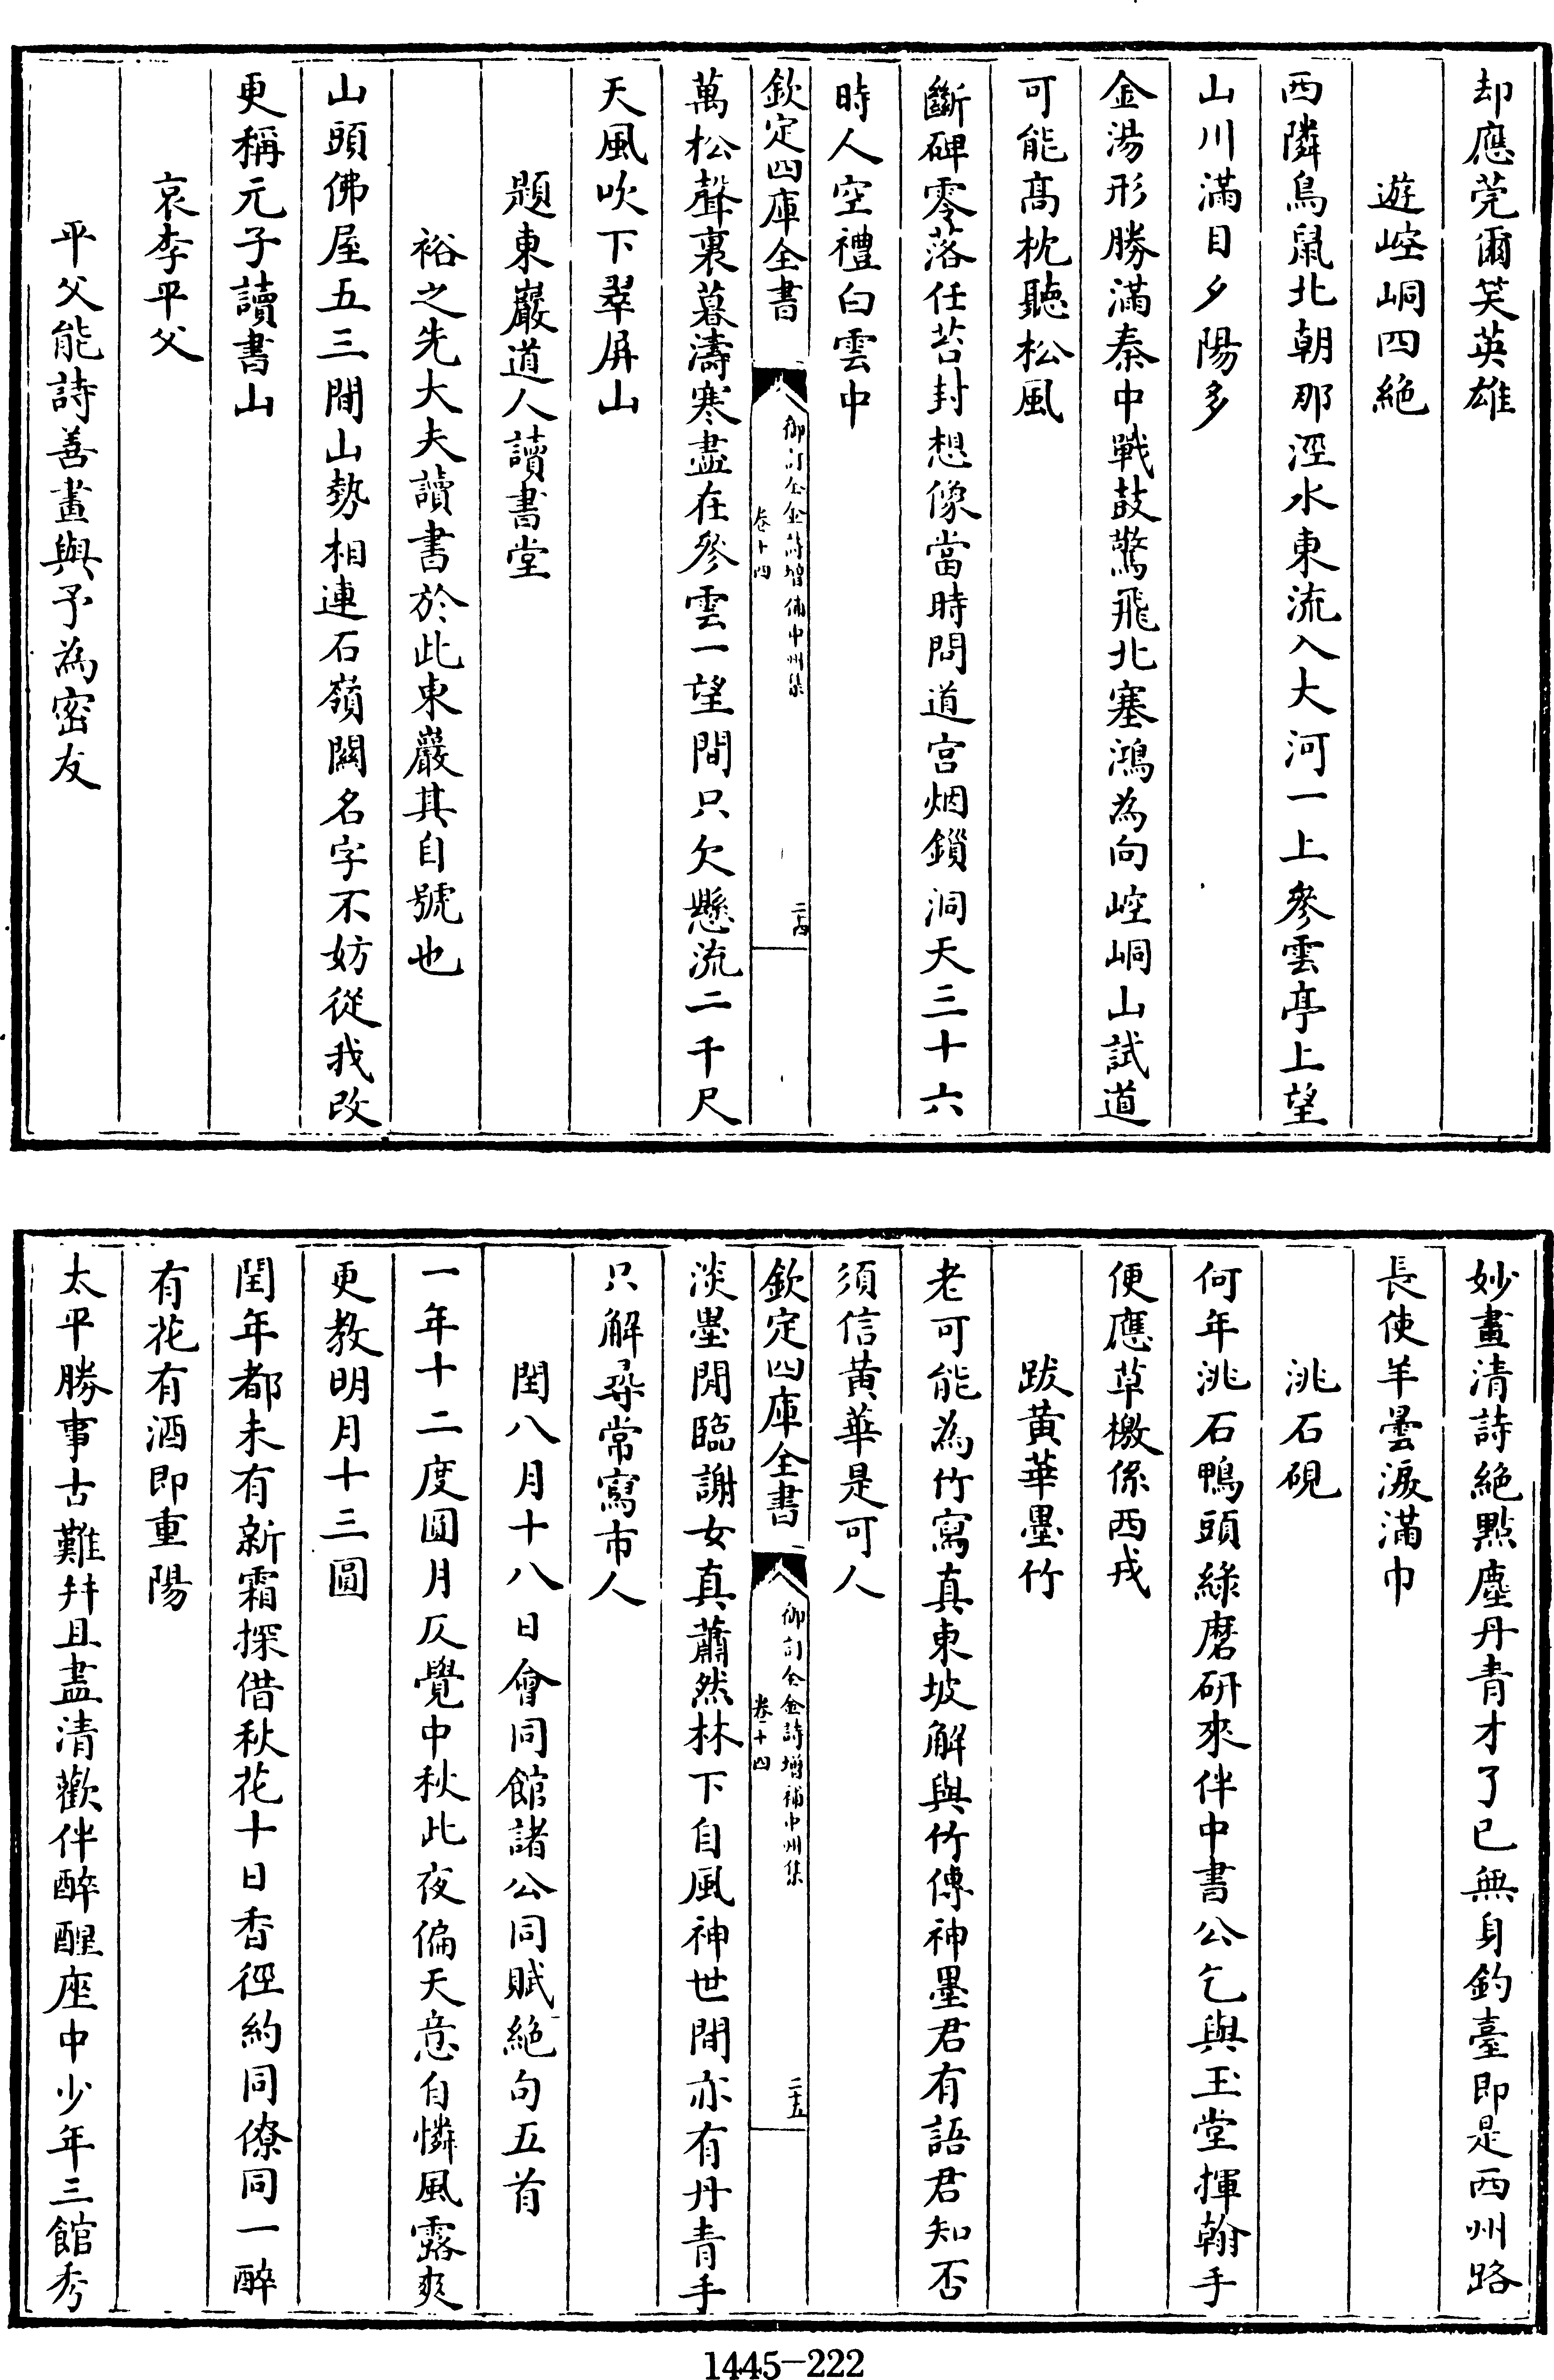 却應莞爾笑英雄
遊崆峒四絶
西隣鳥鼠北朝那涇水東流入大河一上參雲亭上望
山川滿目夕陽多
金湯形勝滿秦中戰鼓驚飛北塞鴻為向崆峒山試道
可能髙枕聽松風
斷碑零落任苔封想像當時問道宫烟鎻洞天三十六
時人空禮白雲中
欽定四庫全書
御訂全金詩增補中州集
卷十四
二十四
萬松聲裏暮濤寒盡在參雲一望間只欠懸流二千尺
天風吹下翠屏山
題東巖道人讀書堂
裕之先大夫讀書於此東巖其自號也
山頭佛屋五三間山勢相連石嶺闗名字不妨從我改
更稱元子讀書山
哀李平父
平父能詩善畫與予為密友
妙畫清詩絶點塵丹青才了已無身釣臺即是西州路
長使羊曇淚滿巾
洮石硯
何年洮石鴨頭緑磨研來伴中書公乞與玉堂揮翰手
便應草檄係西戎
跋黄華墨竹
老可能為竹寫真東坡解與竹傳神墨君有語君知否
須信黄華是可人
欽定四庫全書
御訂全金詩增補中州集
卷十四
二十五
淡墨閒臨謝女真蕭然林下自風神世間亦有丹青手
只解尋常寫市人
閏八月十八日會同館諸公同賦絶句五首
一年十二度圓月仄覺中秋此夜偏天意自憐風露爽
更教明月十三圓
閏年都未有新霜探借秋花十日香徑約同僚同一醉
有花有酒即重陽
太平勝事古難并且盡清歡伴醉醒座中少年三館秀
1445-222